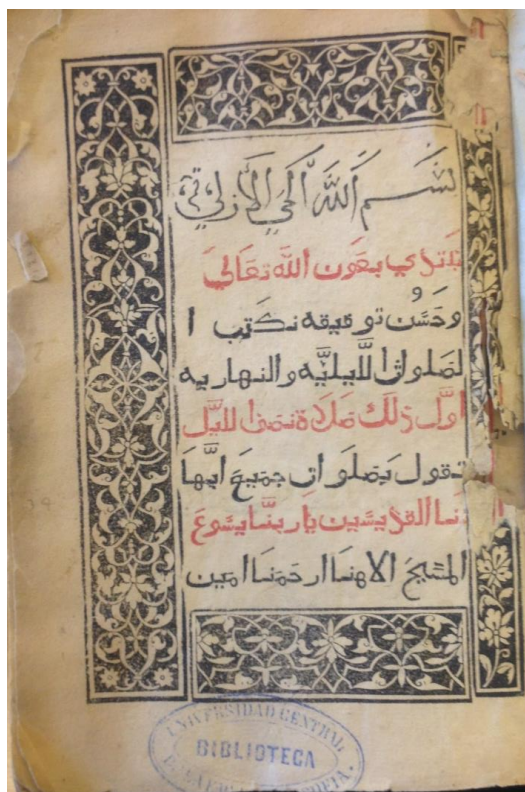 بسم اللّٰه الحي الازلي
نبتدي بعون اللّٰه تعالي
وحسن توفيقه نكتب ا
لصلوات الليليه والنهاريه
اول ذلك صلاة نصف الليل
تقول بصلوات جميع ابها
تنا القديسين ياربنا يشوع
المسيح الاهنا ارحمنا امين
UNIVERSIDAD CENTRAL
BIBLIOTECA